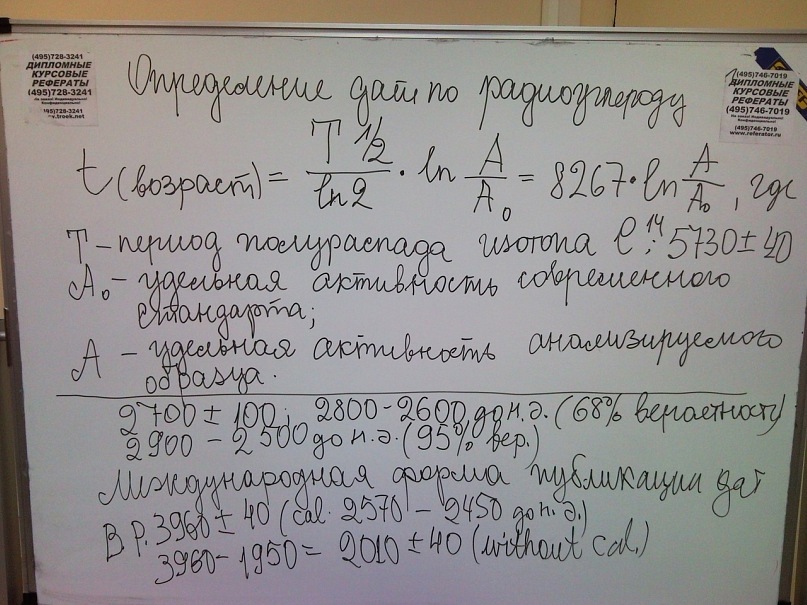 (495)728-3241
ДИПЛОМНЫЕ
КУРСОВЫЕ
РЕФЕРАТЫ
(495)728-3241
На заказ! Индивидуально!
Конфиденциально!
(495)746-7019
ДИПЛОМНЫЕ
КУРСОВЫЕ
РЕФЕРАТЫ
(495)746-7019
(495)746-7019
www.referator.ru
Определение даты по радиоуглероду
t (возраст) = T 1/2 / ln 2 · ln A/A₀ = 8267 · ln A/A₀, где
T – период полураспада изотопа C¹⁴: 5730 ± 40
A₀ – удельная активность современного
стандарта;
A – удельная активность анализируемого
образца.
2700 ± 100; 2800 – 2600 до н.э. (68% вероятность)
2900 – 2500 до н.э. (95% вер.)
Международная форма публикации дат
B.P. 3960 ± 40 (cal. 2570 – 2450 до н.э.)
3960 – 1950 = 2010 ± 40 (without cal.)